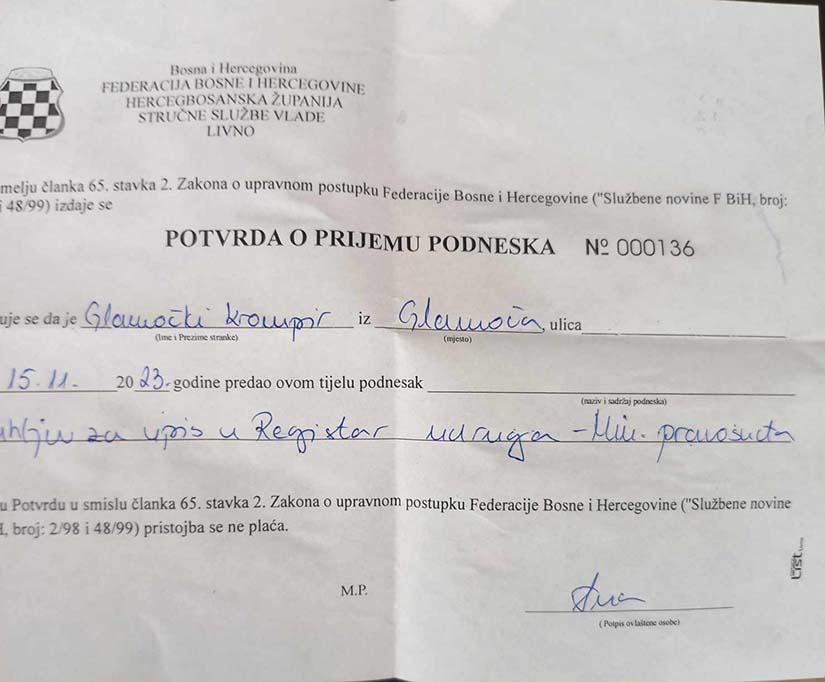 Bosna i Hercegovina
FEDERACIJA BOSNE I HERCEGOVINE
HERCEGBOSANSKA ŽUPANIJA
STRUČNE SLUŽBE VLADE
LIVNO
melju članka 65. stavka 2. Zakona o upravnom postupku Federacije Bosne i Hercegovine ("Službene novine F BiH, broj:
i 48/99) izdaje se
POTVRDA O PRIJEMU PODNESKA № 000136
uje se da je Glamočki krompir iz Glamoča, ulica
(Ime i Prezime stranke) (mjesto)
15.11. 2023. godine predao ovom tijelu podnesak
(naziv i sadržaj podneska)
za upis u Registar udruga - Min. pravosuđa
u Potvrdu u smislu članka 65. stavka 2. Zakona o upravnom postupku Federacije Bosne i Hercegovine ("Službene novine
H, broj: 2/98 i 48/99) pristojba se ne plaća.
M.P.
(Potpis ovlaštene osobe)